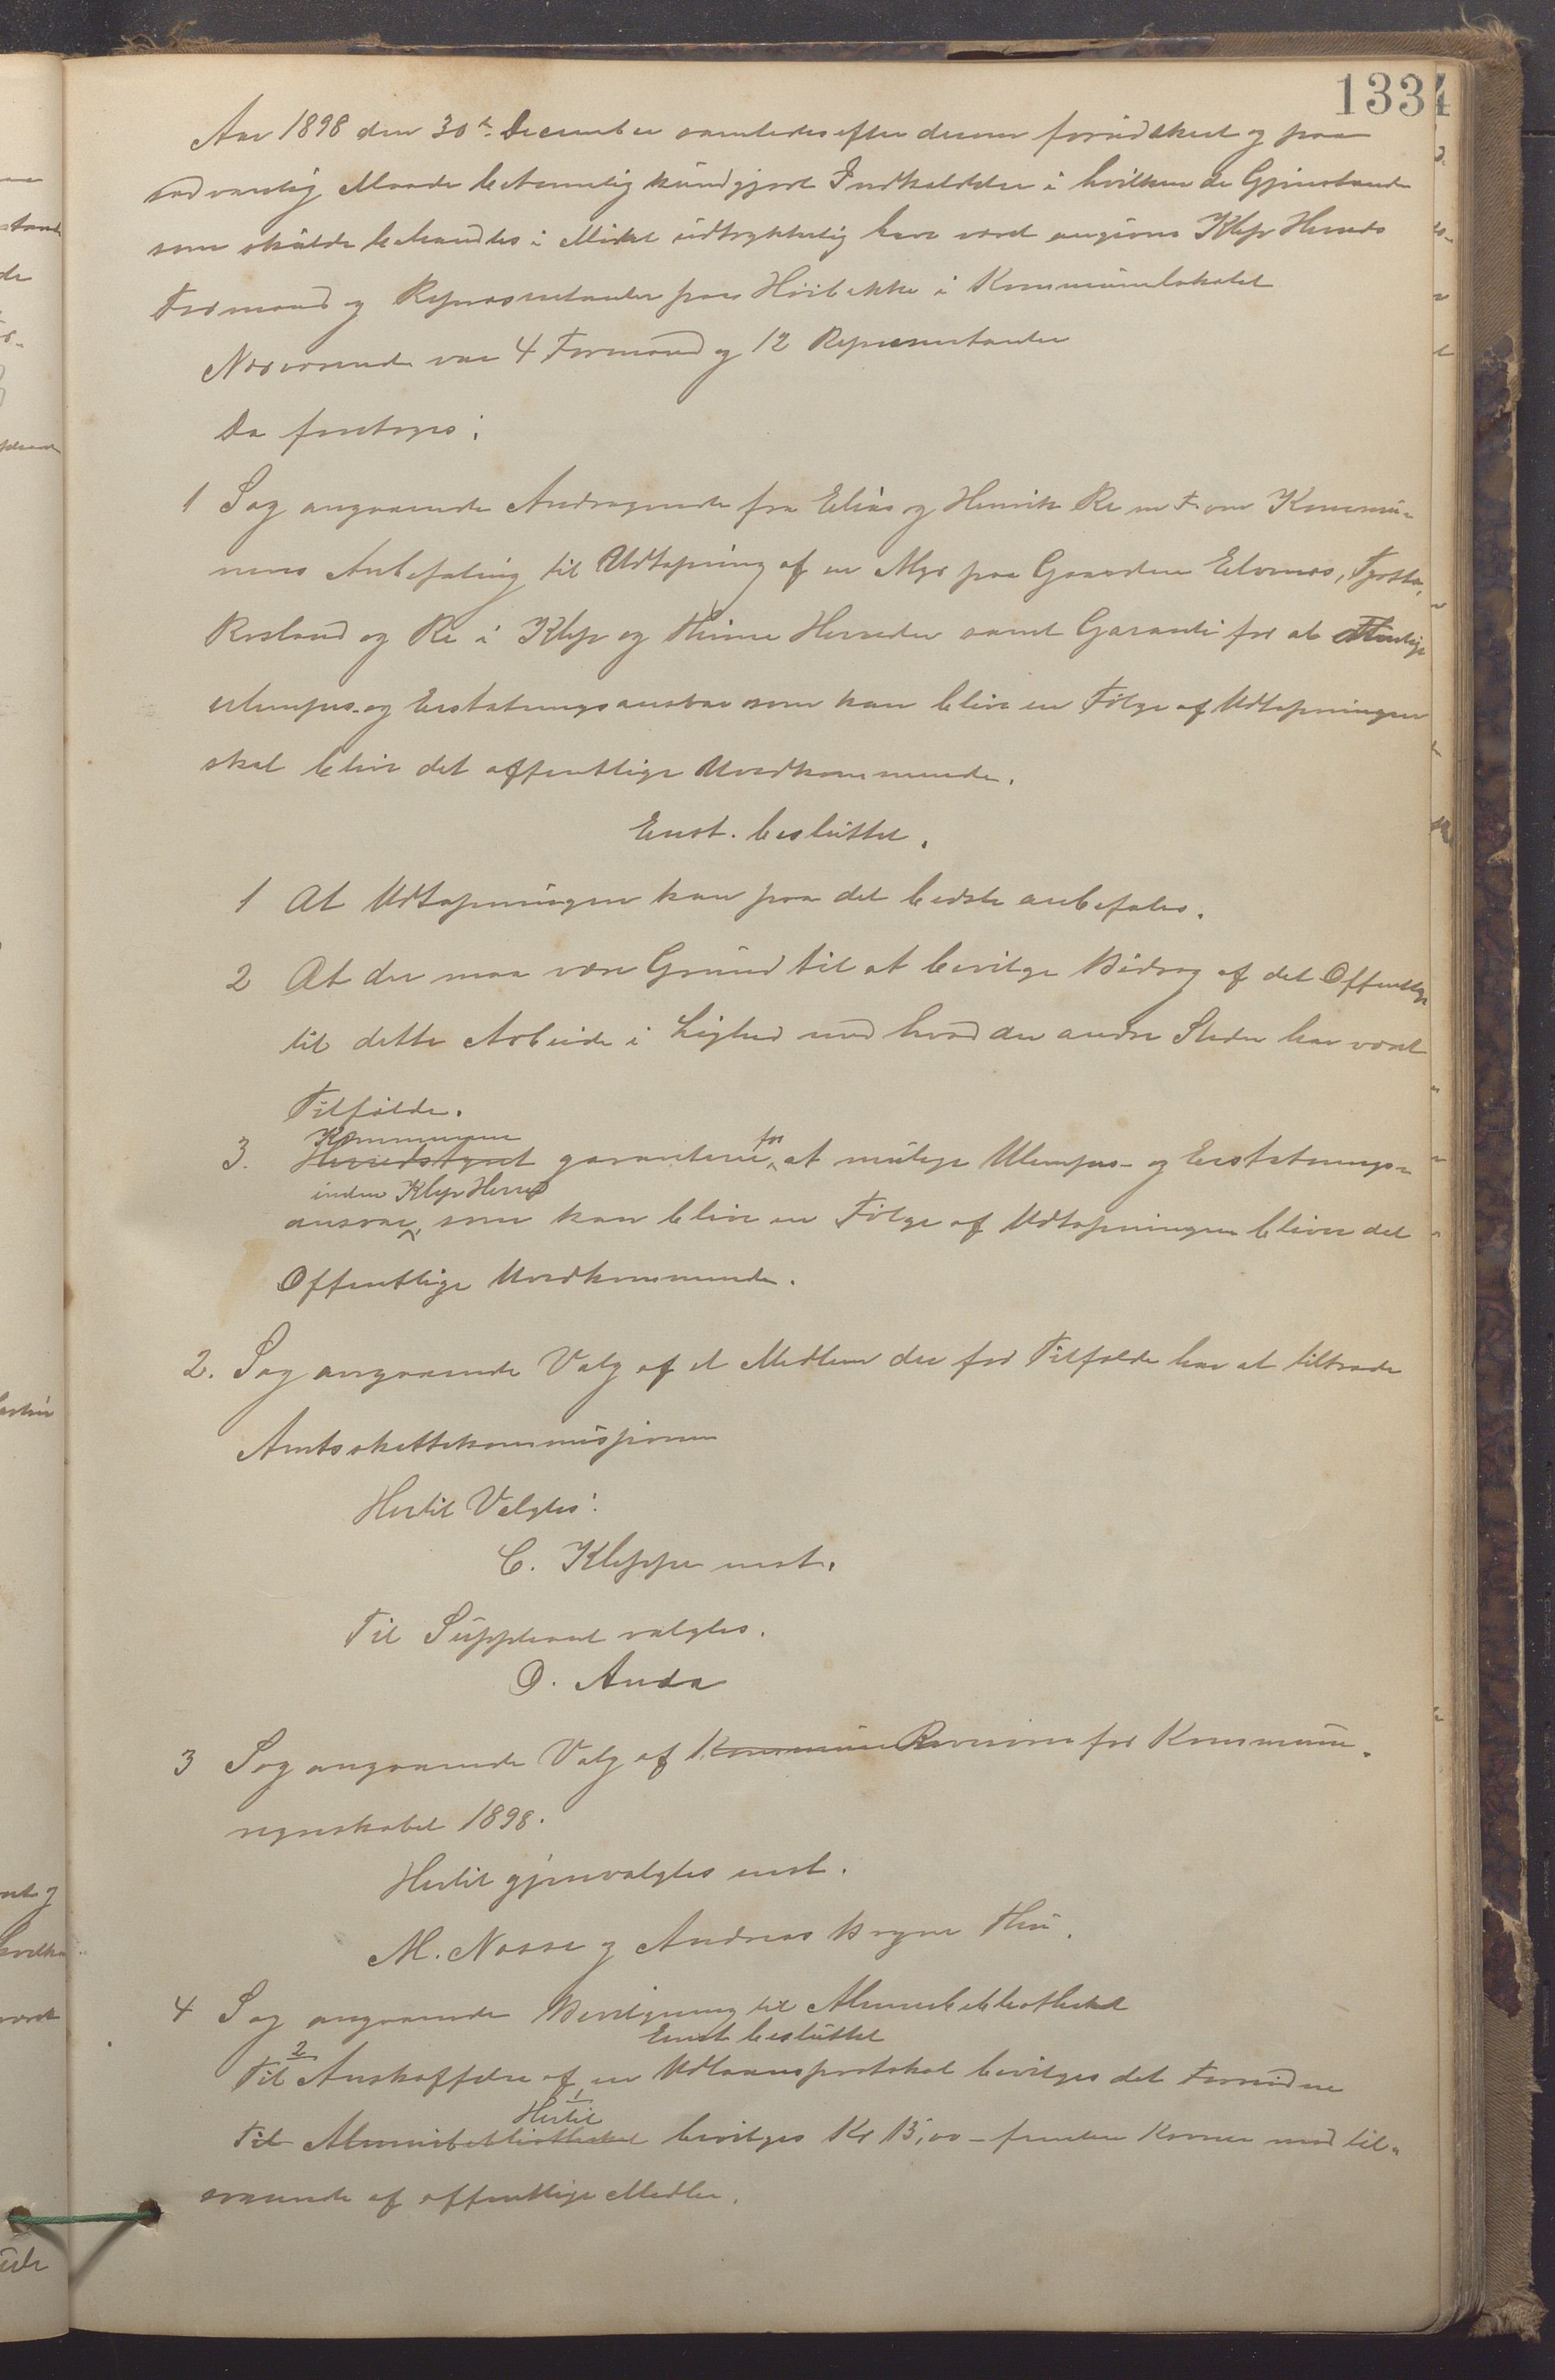 133
Aar 1898 den 30te December samledes efter derom forudskeet og paa
sædvanlig Maade betimelig kundgjort Indkaldelse i hvilken de Gjenstande
som skulde behandles i Mødet udtrykkelig have været angivne Klep Herreds
Formænd og Repræsentanter paa Hvilebække i Kommunelokalet
Nærværende var 4 Formænd og 12 Representanter
Da foretoges:
1 Sag angaaende Andragende fra Elias og Henrik Re m. F. om Kommu-
nens Anbefaling til Udtapning af en Myr paa Gaardene Elvenes, Tjøtta,
Rosland og Re i Klep og Thime Herreder samt Garanti for at mulige
ulempes- og Erstatningsansvar som kan blive en Følge af Udtapningen
skal blive det offentlige Uvedkommende.
Enst. besluttet.
1 At Udtapningen kan paa det bedste anbefales.
2 At der maa være Grund til at bevilge Bidrag af det Offentlige
til dette Arbeide i Lighed med hvad der andre Steder har været
Tilfælde.
Kommunen
3. Herredstyret garanterer for at mulige Ulempes- og Erstatnings-
inden Klep Herred
ansvar, som kan blive en Følge af Udtapningen bliver det
Offentlige Uvedkommende.
2. Sag angaaende Valg af et Medlem der for Tilfælde har at tiltræde
Amtsskattekommisjonen
Hertil Valgtes:
C. Kleppe enst.
Til Suppleant valgtes.
O. Anda
3 Sag angaaende Valg af Kommune Revisorer for Kommune-
regnskabet 1898.
Hertil gjenvalgtes enst.
M. Næsse og Andreas Bryne Thu.
4 Sag angaaende Bevilgning til Almuebibliotheket
Enst besluttet
2 Til Anskaffelse af en Udlaansprotokol bevilges det Fornødne
1 Hertil
Til Almuebibliotheket bevilges Kr 15,00 - femten Kroner mod til-
svarende af offentlige Midler.